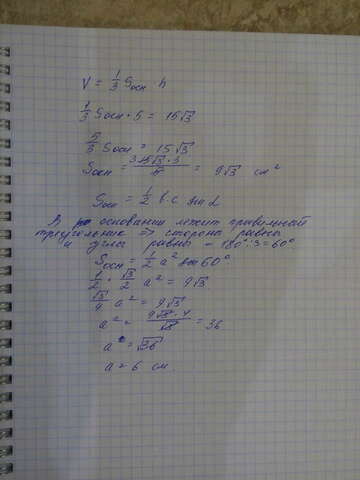 V = 1/3 Sосн h
1/3 Sосн · 5 = 15√3
5/3 Sосн = 15√3
Sосн = 15√3 · 3 / 5 = 9√3 см²
Sосн = 1/2 b·c sin α
В основании лежит правильный
треугольник => стороны равны
и углы равны = 180° : 3 = 60°
Sосн = 1/2 a² sin 60°
1/2 · √3/2 a² = 9√3
√3/4 a² = 9√3
a² = 9√3 · 4 / √3 = 36
a = √36
a = 6 см